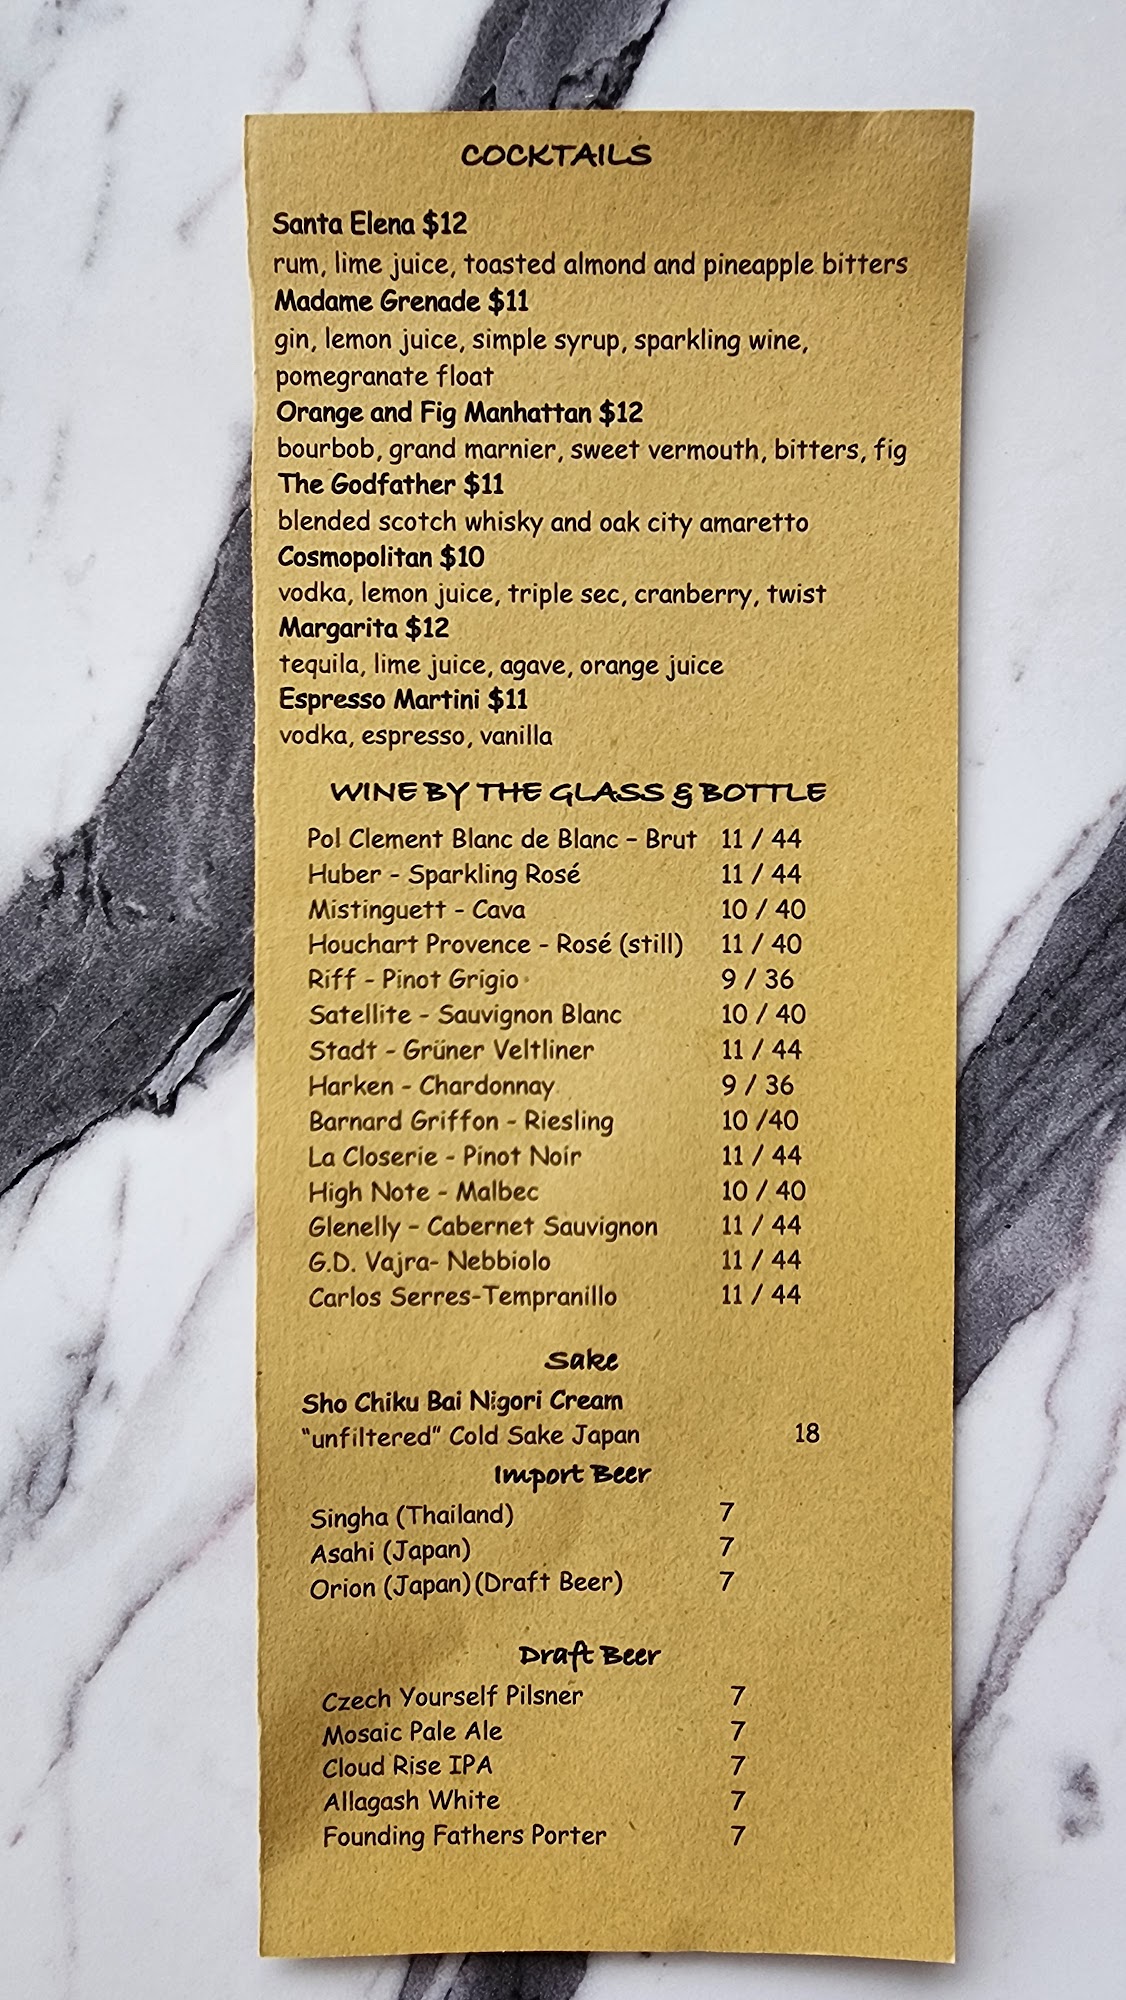 COCKTAILS
Santa Elena $12
rum, lime juice, toasted almond and pineapple bitters
Madame Grenade $11
gin, lemon juice, simple syrup, sparkling wine,
pomegranate float
Orange and Fig Manhattan $12
bourbob, grand marnier, sweet vermouth, bitters, fig
The Godfather $11
blended scotch whisky and oak city amaretto
Cosmopolitan $10
vodka, lemon juice, triple sec, cranberry, twist
Margarita $12
tequila, lime juice, agave, orange juice
Espresso Martini $11
vodka, espresso, vanilla
WINE BY THE GLASS & BOTTLE
Pol Clement Blanc de Blanc – Brut 11 / 44
Huber - Sparkling Rosé 11 / 44
Mistinguett - Cava 10 / 40
Houchart Provence - Rosé (still) 11 / 40
Riff - Pinot Grigio 9 / 36
Satellite - Sauvignon Blanc 10 / 40
Stadt - Grüner Veltliner 11 / 44
Harken - Chardonnay 9 / 36
Barnard Griffon - Riesling 10 /40
La Closerie - Pinot Noir 11 / 44
High Note - Malbec 10 / 40
Glenelly – Cabernet Sauvignon 11 / 44
G.D. Vajra- Nebbiolo 11 / 44
Carlos Serres-Tempranillo 11 / 44
Sake
Sho Chiku Bai Nigori Cream
"unfiltered" Cold Sake Japan 18
Import Beer
Singha (Thailand) 7
Asahi (Japan) 7
Orion (Japan)(Draft Beer) 7
Draft Beer
Czech Yourself Pilsner 7
Mosaic Pale Ale 7
Cloud Rise IPA 7
Allagash White 7
Founding Fathers Porter 7